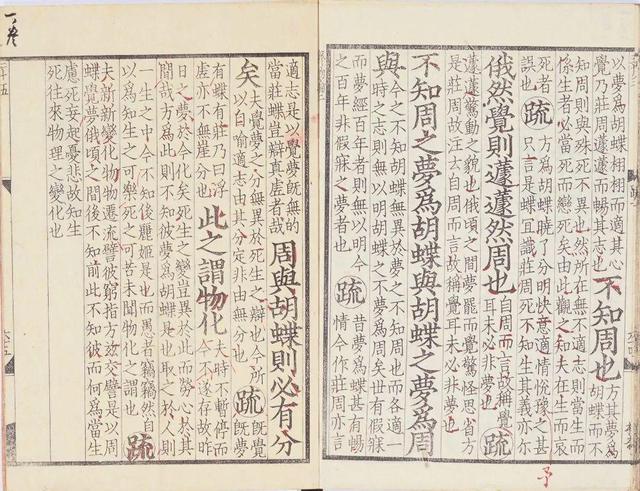 以夢為胡蝶栩栩而適其心
覺乃莊周蘧蘧而暢其志
不知周也
方其夢為
胡蝶而不
知周則與殊死不異也然所在無不適志則當生而
係生者必當死而戀死矣由此觀之知夫在生而哀
死者
誤也
疏
方為胡蝶曉了分明快意適情悅豫之甚
只言是蝶宜識莊周死不知生其義亦尒
俄然覺則蘧蘧然周也
自周而言故稱覺
耳未必非夢也
疏
蘧蘧驚動之貌也俄頃之間夢罷而覺驚怪思省方
是莊周故注云自周而言故稱覺耳未必非夢也
不知周之夢為胡蝶與胡蝶之夢為周
與
今之不知胡蝶無異於夢之不知周也而各適一
時之志則無以明胡蝶之不夢為周矣世有假寐
而夢經百年者則無以明今
之百年非假寐之夢者也
疏
昔夢為蝶甚有暢
情今作莊周亦言
適志是以覺夢旣無的
當莊蝶豈辯真虛者哉
周與胡蝶則必有分
矣
夫覺夢之分無異於死生之辯也今所
以自喻適志由其分定非由無分也
疏
旣覺
旣夢
有蝶有莊乃曰浮
虛亦不無崖分也
此之謂物化
夫時不暫停而
今不遂存故昨
日之夢於今化矣死生之變豈異於此而勞心於其
間哉方為此則不知彼夢為胡蝶是也取之於人則
一生之中今不知後麗姬是也而愚者竊竊然自
以為知生之可樂死之可苦未聞物化之謂也
疏
夫新新變化物物遷流譬彼窮指方茲交臂是以周
蝶覺夢俄頃之間後不知前此不知彼而何為當生
慮死妄起憂悲故知生
死往來物理之變化也